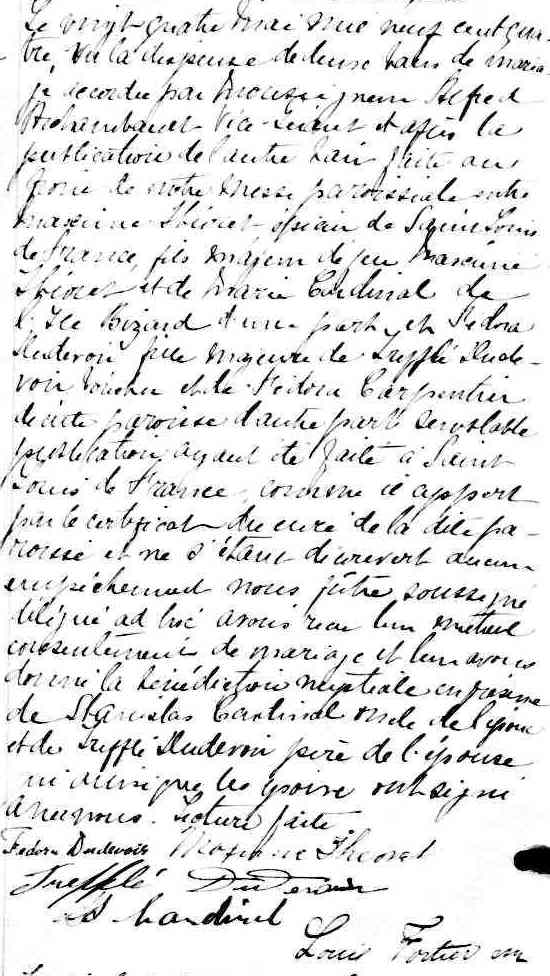 Le vingt-quatre mai mil neuf cent qua-
tre, vu la dispense de deux bans de maria-
ge accordée par Monseigneur Alfred
Archambault Vice-Gérant et après la
publication de l'autre ban faite au
prône de notre messe paroissiale entre
Maxime Théoret épicier de Saint Louis
de France, fils majeur de feu Maxime
Théoret et de Marie Cardinal de
l'Ile Bizard d'une part, et Fédora
Dudevoir fille majeure de Trefflé Dude-
voir boucher et de Fédora Carpentier
de cette paroisse d'autre part semblable
publication ayant été faite à Saint
Louis de France, comme il appert
par le certificat du curé de la dite pa-
roisse et ne s'étant découvert aucun
empêchement nous prêtre soussigné
délégué ad hoc avons reçu leur mutuel
consentement de mariage et leur avons
donné la bénédiction nuptiale en présence
de Stanislas Cardinal oncle de l'époux
et de Trefflé Dudevoir père de l'épouse
qui ainsi que les époux ont signé
avec nous. Lecture faite.
Fedora Dudevoir Maxime Theoret
Trefflé Dudevoir
St Cardinal
Louis Fortier